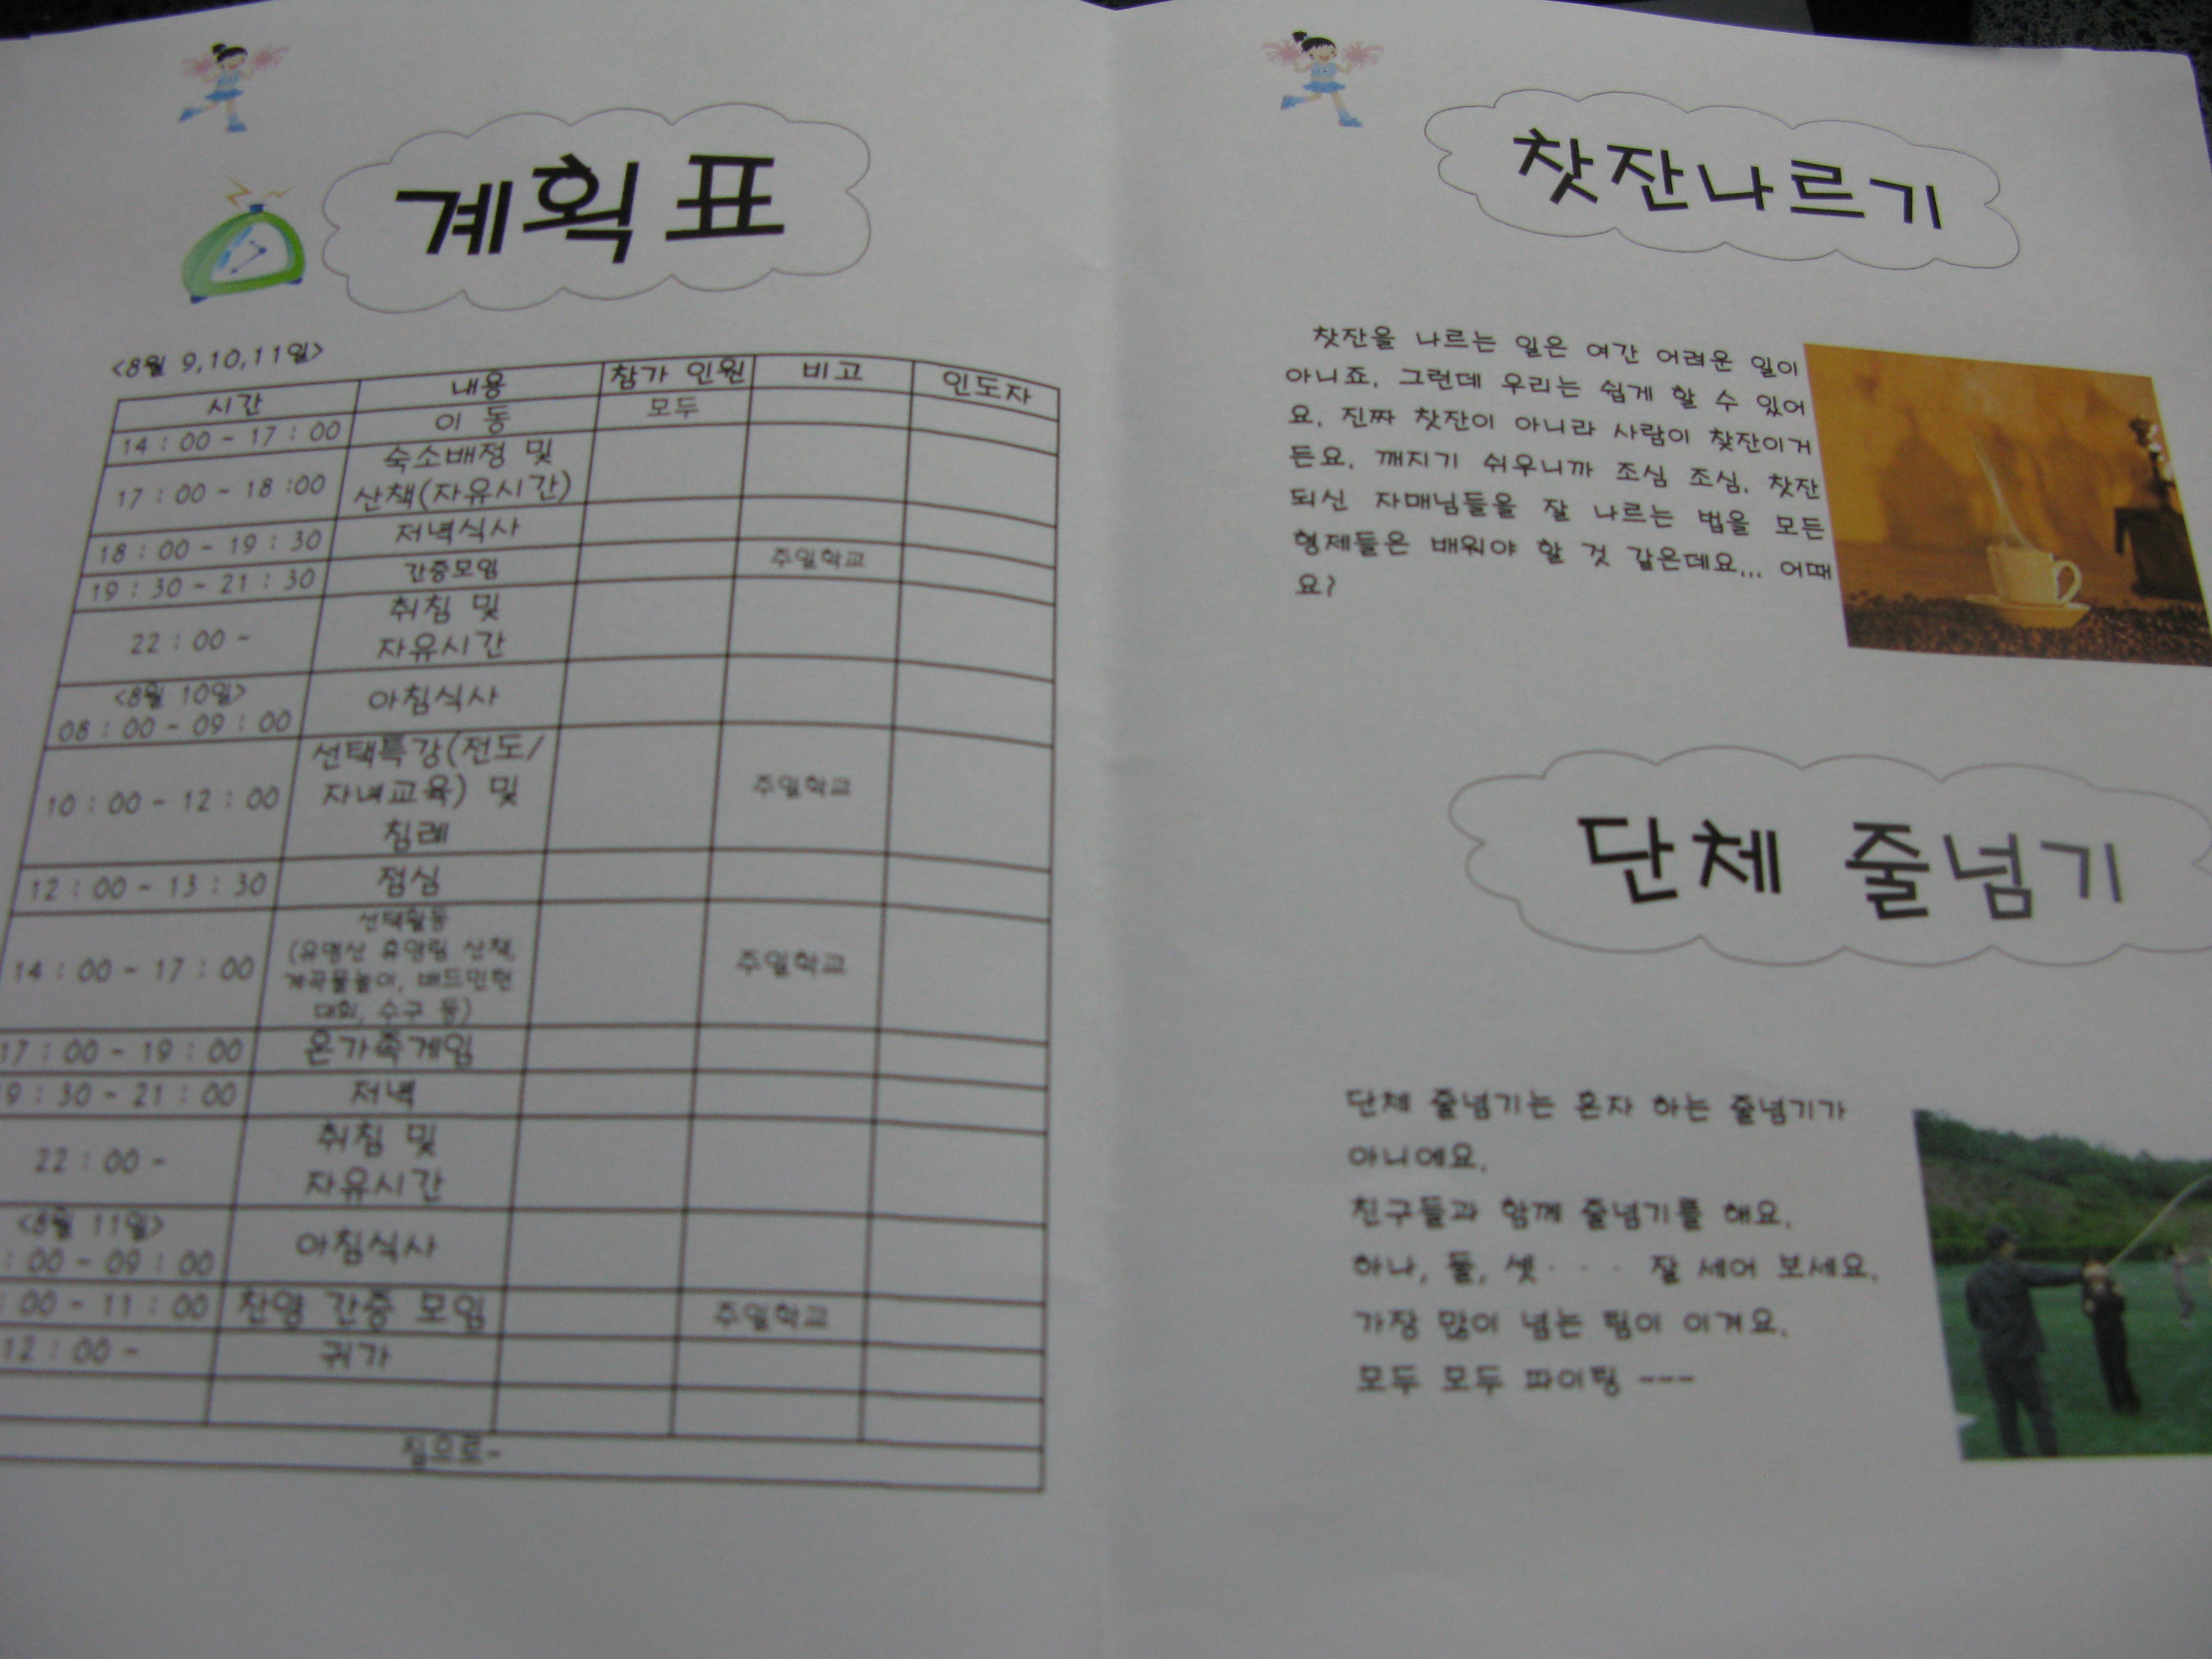 계획표
<8월 9,10,11일>
시간 내용 참가 인원 비고 인도자
14 : 00 ~ 17 : 00 이 동 모두
17 : 00 ~ 18 :00 숙소배정 및
산책(자유시간)
18 : 00 ~ 19 : 30 저녁식사
19 : 30 ~ 21 : 30 간증모임 주일학교
22 : 00 ~ 취침 및
자유시간
<8월 10일>
08 : 00 ~ 09 : 00 아침식사
10 : 00 ~ 12 : 00 선택특강(전도/
자녀교육) 및
침례 주일학교
12 : 00 ~ 13 : 30 점심
14 : 00 ~ 17 : 00 선택활동
(유명산 휴양림 산책,
계곡물놀이, 배드민턴
대회, 수구 등) 주일학교
17 : 00 ~ 19 : 00 온가족게임
9 : 30 ~ 21 : 00 저녁
22 : 00 ~ 취침 및
자유시간
<8월 11일>
: 00 ~ 09 : 00 아침식사
: 00 ~ 11 : 00 찬양 간증 모임 주일학교
12 : 00 ~ 귀가
집으로~
찻잔나르기
찻잔을 나르는 일은 여간 어려운 일이
아니죠. 그런데 우리는 쉽게 할 수 있어
요. 진짜 찻잔이 아니라 사람이 찻잔이거
든요. 깨지기 쉬우니까 조심 조심. 찻잔
되신 자매님들을 잘 나르는 법을 모든
형제들은 배워야 할 것 같은데요... 어때
요?
단체 줄넘기
단체 줄넘기는 혼자 하는 줄넘기가
아니에요.
친구들과 함께 줄넘기를 해요.
하나, 둘, 셋 · · · 잘 세어 보세요.
가장 많이 넘는 팀이 이겨요.
모두 모두 파이팅 ~~~